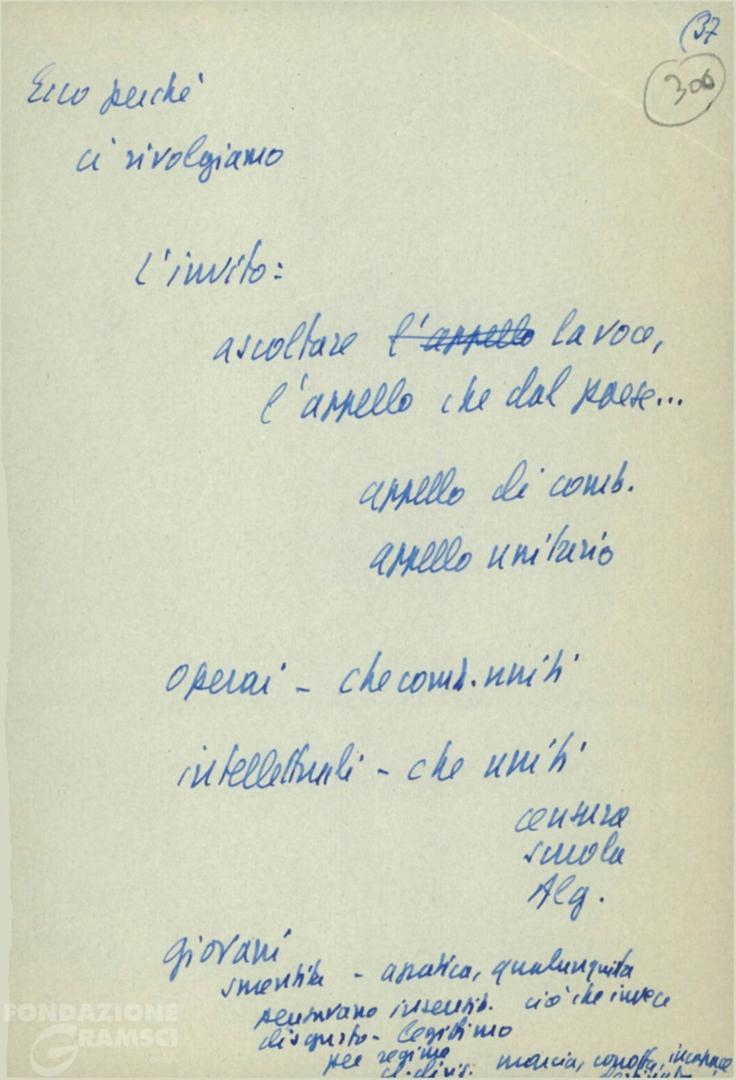 (37
306
Ecco perché
ci rivolgiamo
L'invito:
ascoltare l'appello la voce,
l'appello che dal paese...
appello di comb.
appello unitario
operai - che comb. uniti
intellettuali - che uniti
censura
scuola
Alg.
giovani
smentita - apatica, qualunquista
pensavano insensib. ciò che invece
disgusto - legittimo
per regime
d. divis. marcia, corrotta, incapace
FONDAZIONE
GRAMSCI